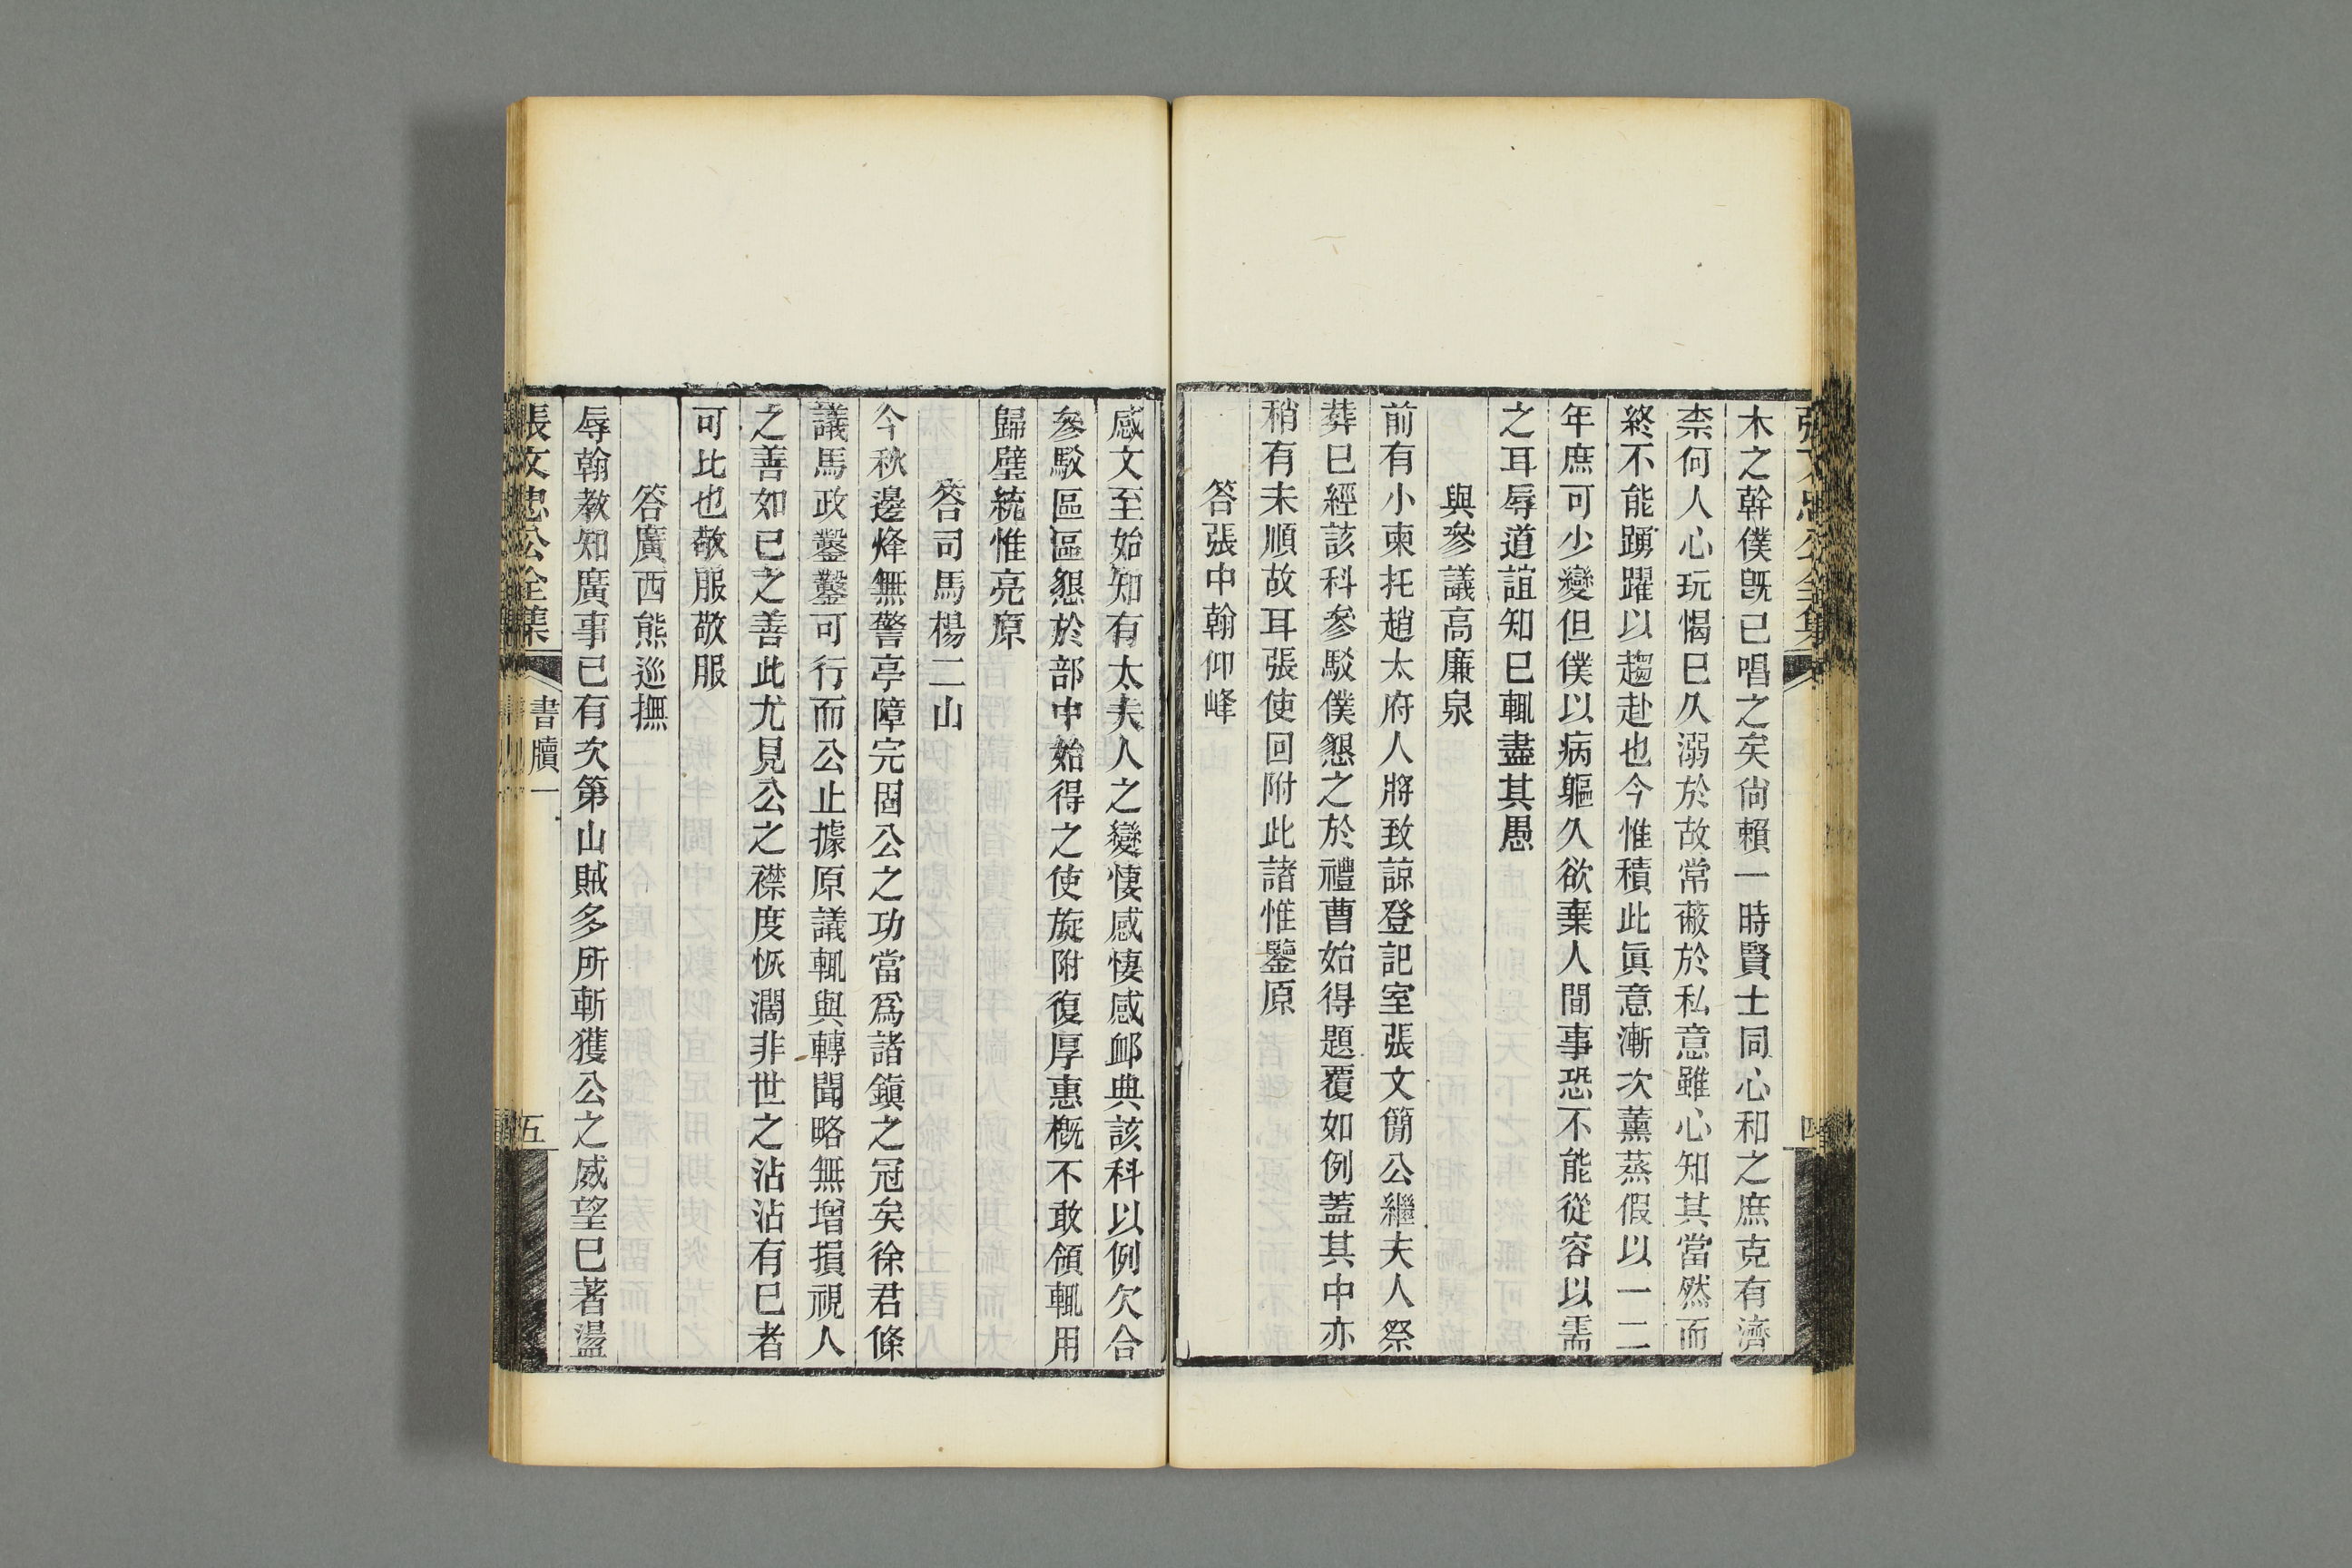 木之幹僕旣已唱之矣尙賴一時賢士同心和之庶克有濟
柰何人心玩愒已久溺於故常蔽於私意雖心知其當然而
終不能踴躍以趨赴也今惟積此眞意漸次薰蒸假以一二
年庶可少變但僕以病軀久欲棄人間事恐不能從容以需
之耳辱道誼知已輒盡其愚
與參議高廉泉
前有小柬托趙太府人將致諒登記室張文簡公繼夫人祭
葬已經該科參駁僕懇之於禮曹始得題覆如例蓋其中亦
稍有未順故耳張使回附此諸惟鑒原
答張中翰仰峰
感文至始知有太夫人之變悽感悽感卹典該科以例欠合
參駁區區懇於部中始得之使旋附復厚惠槪不敢領輒用
歸璧統惟亮原
答司馬楊二山
今秋邊烽無警亭障完固公之功當爲諸鎭之冠矣徐君條
議馬政鑿鑿可行而公止據原議輒與轉聞略無增損視人
之善如已之善此尤見公之襟度恢濶非世之沾沾有已者
可比也敬服敬服
答廣西熊巡撫
辱翰教知廣事已有次第山賊多所斬獲公之威望已著盪
張文忠公全集
書牘一
五